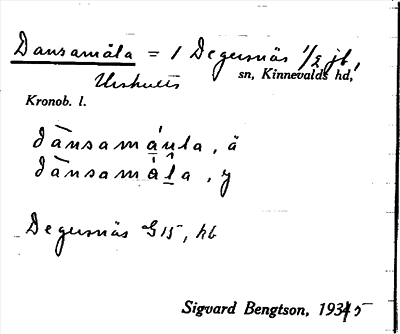 Dansamåla = 1 Degersnäs 1/2 jb,
Urshults sn, Kinnevalds hd,
Kronob. l.
dànsamáula, ä
dànsamála, y
Degersnäs G15, hb
Sigvard Bengtson, 1935